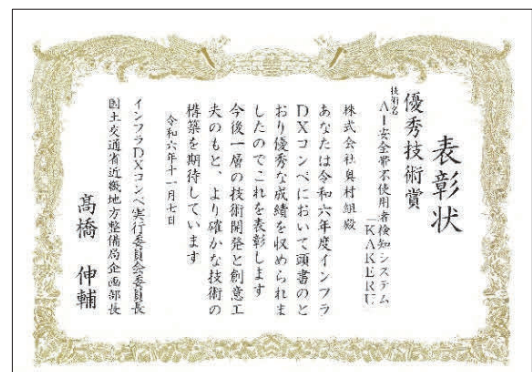 表彰状
優秀技術賞
技術名
AI安全帯不使用者検知システム
「KAKERU」
株式会社奥村組殿
あなたは令和六年度インフラ
DXコンペにおいて頭書のと
おり優秀な成績を収められま
したのでこれを表彰します
今後一層の技術開発と創意工
夫のもと、より確かな技術の
構築を期待しています
令和六年十一月七日
インフラDXコンペ実行委員会委員長
国土交通省近畿地方整備局企画部長
髙橋 伸輔